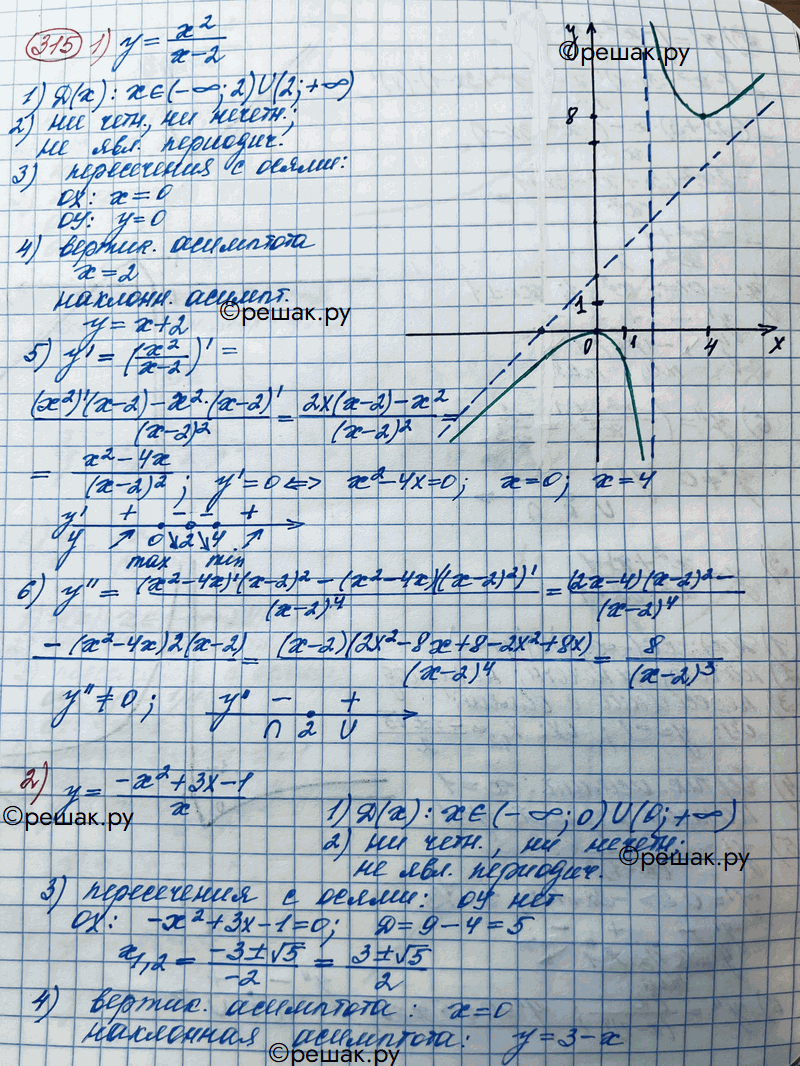 315 1) y = x²/(x-2)
©решак.ру
1) D(x): x∈(-∞; 2)∪(2; +∞)
2) ни четн., ни нечетн.;
не явл. периодич.
3) пересечения с осями:
OX: x = 0
OY: y = 0
4) вертик. асимптота
x = 2
наклонн. асимпт.
©решак.ру
y = x+2
5) y' = (x²/(x-2))' =
((x²)'(x-2) - x²·(x-2)')/(x-2)² = (2x(x-2) - x²)/(x-2)² =
= (x²-4x)/(x-2)²; y' = 0 <=> x²-4x=0; x=0; x=4
y' + - - +
y ↗ 0 ↘ 2 ↘ 4 ↗
max min
y
8
1
0 1 4 x
6) y'' = ((x²-4x)'(x-2)² - (x²-4x)((x-2)²)')/(x-2)⁴ = ((2x-4)(x-2)² -)/(x-2)⁴
- (x²-4x)2(x-2) = ((x-2)(2x²-8x+8-2x²+8x))/(x-2)⁴ = 8/(x-2)³
y'' ≠ 0; y'' - +
∩ 2 ∪
2) y = (-x²+3x-1)/x
©решак.ру
1) D(x): x∈(-∞; 0)∪(0; +∞)
2) ни четн., ни нечетн;
не явл. периодич.
©решак.ру
3) пересечения с осями: OY нет
OX: -x²+3x-1=0; D=9-4=5
x₁,₂ = (-3±√5)/-2 = (3±√5)/2
4) вертик. асимптота: x=0
наклонная асимптота: y=3-x
©решак.ру